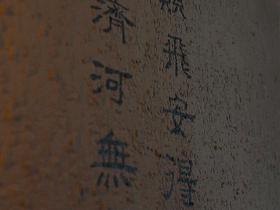 飛安得
濟河無